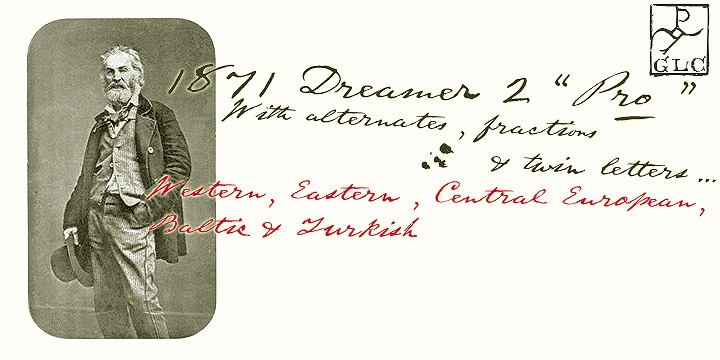 P
GLC
1871 Dreamer 2 “Pro”
With alternates, fractions
& twin letters...
Western, Eastern, Central European,
Baltic & Turkish